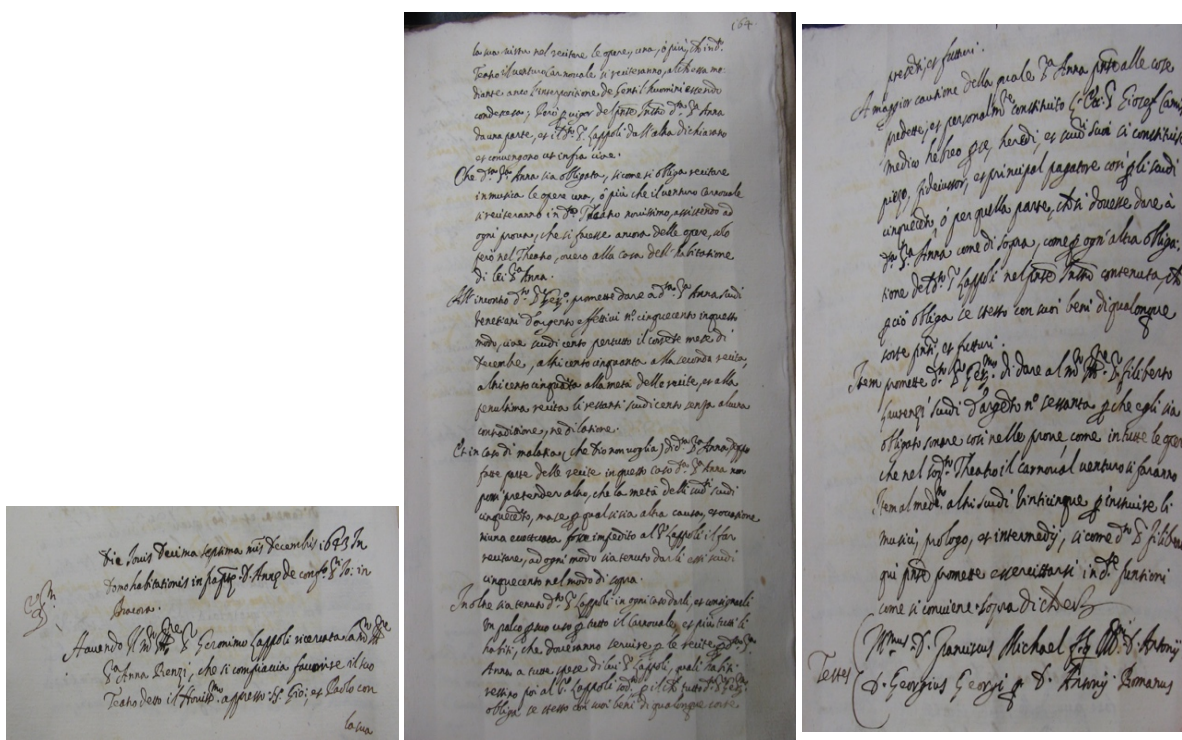 Die Iovis Decima septima mẽs Decembris 1643 In
Domo habitationis infraptę D. Annę de confo S. Io: in
Bracora.
Havendo Il S.r Geronimo Lappoli ricercata la
S.ra Anna Renzi, che si compiaccia favorire il suo
Teatro detto il Noviss.mo appresso SS. Gio; et Paolo con
la sua
164
la sua virtù nel recitare le opere, una, ò più, ch' in d.to
Teatro il venturo Carnovale si reciteranno, al che essa me-
diante anco l'interpositione de Gentil'huomini essendo
condescesa; Però p vigor del pñte Instro d.ta S.ra Anna
da una parte, et il d.to S.r Lappoli dall'altra dichiarano
et convengono ut infra cioe.
Che d.ta S.ra Anna sia obligata, sicome si obliga recitare
in musica le opere una, ò più che il venturo Carnovale
si reciteranno in d.to Theatro novissimo, assistendo ad
ogni prova, che si facesse ancora delle opere, solo
però nel Theatro, overo alla casa dell'habitatione
di lei S.ra Anna.
All'incontro d.to S.r promette dare a d.ta S.ra Anna scudi
Venetiani d'argento effettivi n.o cinquecento in questo
modo, cioe scudi cento per tutto il corrẽte mese di
Decembre, altri cento cinquanta alla seconda recita,
altri cento cinquãta alla metà delle recite, et alla
penultima recita li restanti scudi cento senza alcuna
contradicione, ne dilatione.
Et in caso di malatia (che Dio non voglia) di d.ta S.ra Anna doppo
fatte parte delle recite in questo caso d.ta S.ra Anna non
possi pretender altro, che la metà delli sud.ti scudi
cinquecẽto, ma se p qual si sia altra causa, et occasione
niuna eccettuata fosse impedito al S.r Lappoli il far
recitare, ad ogni modo sia tenuto darli essi scudi
cinquecento nel modo di sopra.
Inoltre sia tenuto d.to S.r Lappoli in ogni caso darli, et consignarli
un palco p suo uso p tutto il carnovale, et più tutti li
habiti, che doveranno servire p le recite p d.ta S.ra
Anna a tutte spese di lui S.r Lappoli, quali habiti
restino poi al S.r Lappoli sod.to p il ch' tutto d.to S.r
obliga se stesso con suoi beni di qualonque sorte
presẽti, et futuri.
A maggior cautione della quale S.ra Anna pñte alle cose
predette, et personalm.te constituito l'Ecc. S.r Giosef
medico hebreo p se, heredi, et succ.ri suoi si constituisce
piezo, fideiussor, et principal pagatore così p li scudi
cinquecẽto, ò per quella parte, che si dovesse dare à
d.ta S.ra Anna come di sopra, come p ogn'altra obliga-
tione del d.to S.r Lappoli nel pñte Instro contenuta, et
p ciò obliga se stesso con suoi beni di qualonque
sorte pñti, et futuri.
Item promette d.to S.r di dare al S.r Filiberto
Laurenzi scudi d'argẽto n.o sessanta p che egli sia
obligato sonare così nelle prove, come in tutte le opere
che nel sod.to Theatro il carnoval venturo si faranno
Item al med.mo altri scudi vinticinque p instruire li
musici, prologo, et intermedij, sicome d.to S.r Filiberto
qui pñte promette essercitarsi in d.te funtioni
come si conviene. sopra di che
Testes D. Franciscus Michael D. Antonij
D. Georgius Georgi q. D. Antonij Romanus